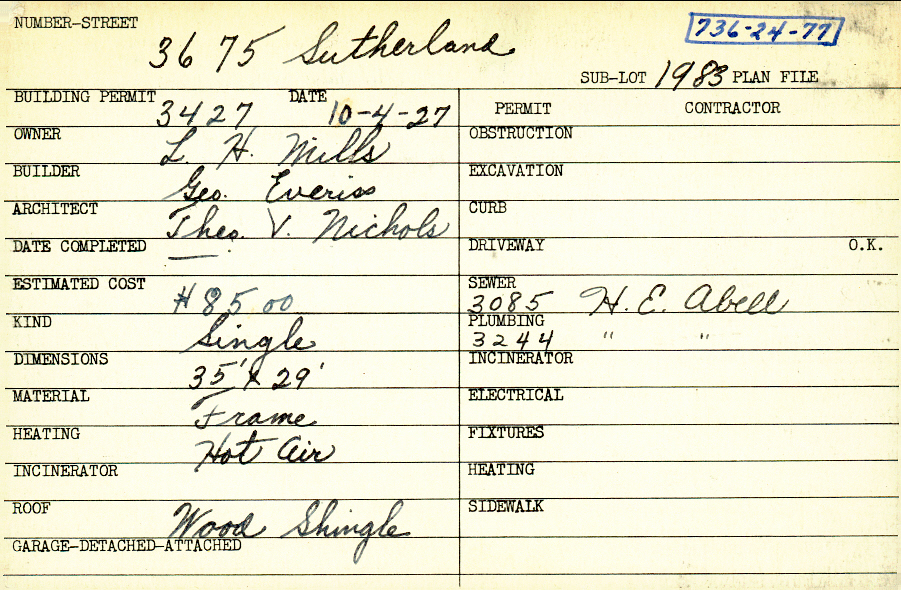 NUMBER-STREET 3675 Sutherland 736-24-77
SUB-LOT 1983 PLAN FILE
BUILDING PERMIT 3427 DATE 10-4-27 PERMIT CONTRACTOR
OWNER L. H. Mills OBSTRUCTION
BUILDER Geo. Everiss EXCAVATION
ARCHITECT Theo. V. Nichols CURB
DATE COMPLETED — DRIVEWAY O.K.
ESTIMATED COST $8500 SEWER 3085 H. E. Abell
KIND Single PLUMBING 3244 " "
DIMENSIONS 35' x 29' INCINERATOR
MATERIAL Frame ELECTRICAL
HEATING Hot Air FIXTURES
INCINERATOR HEATING
ROOF Wood Shingle SIDEWALK
GARAGE-DETACHED-ATTACHED